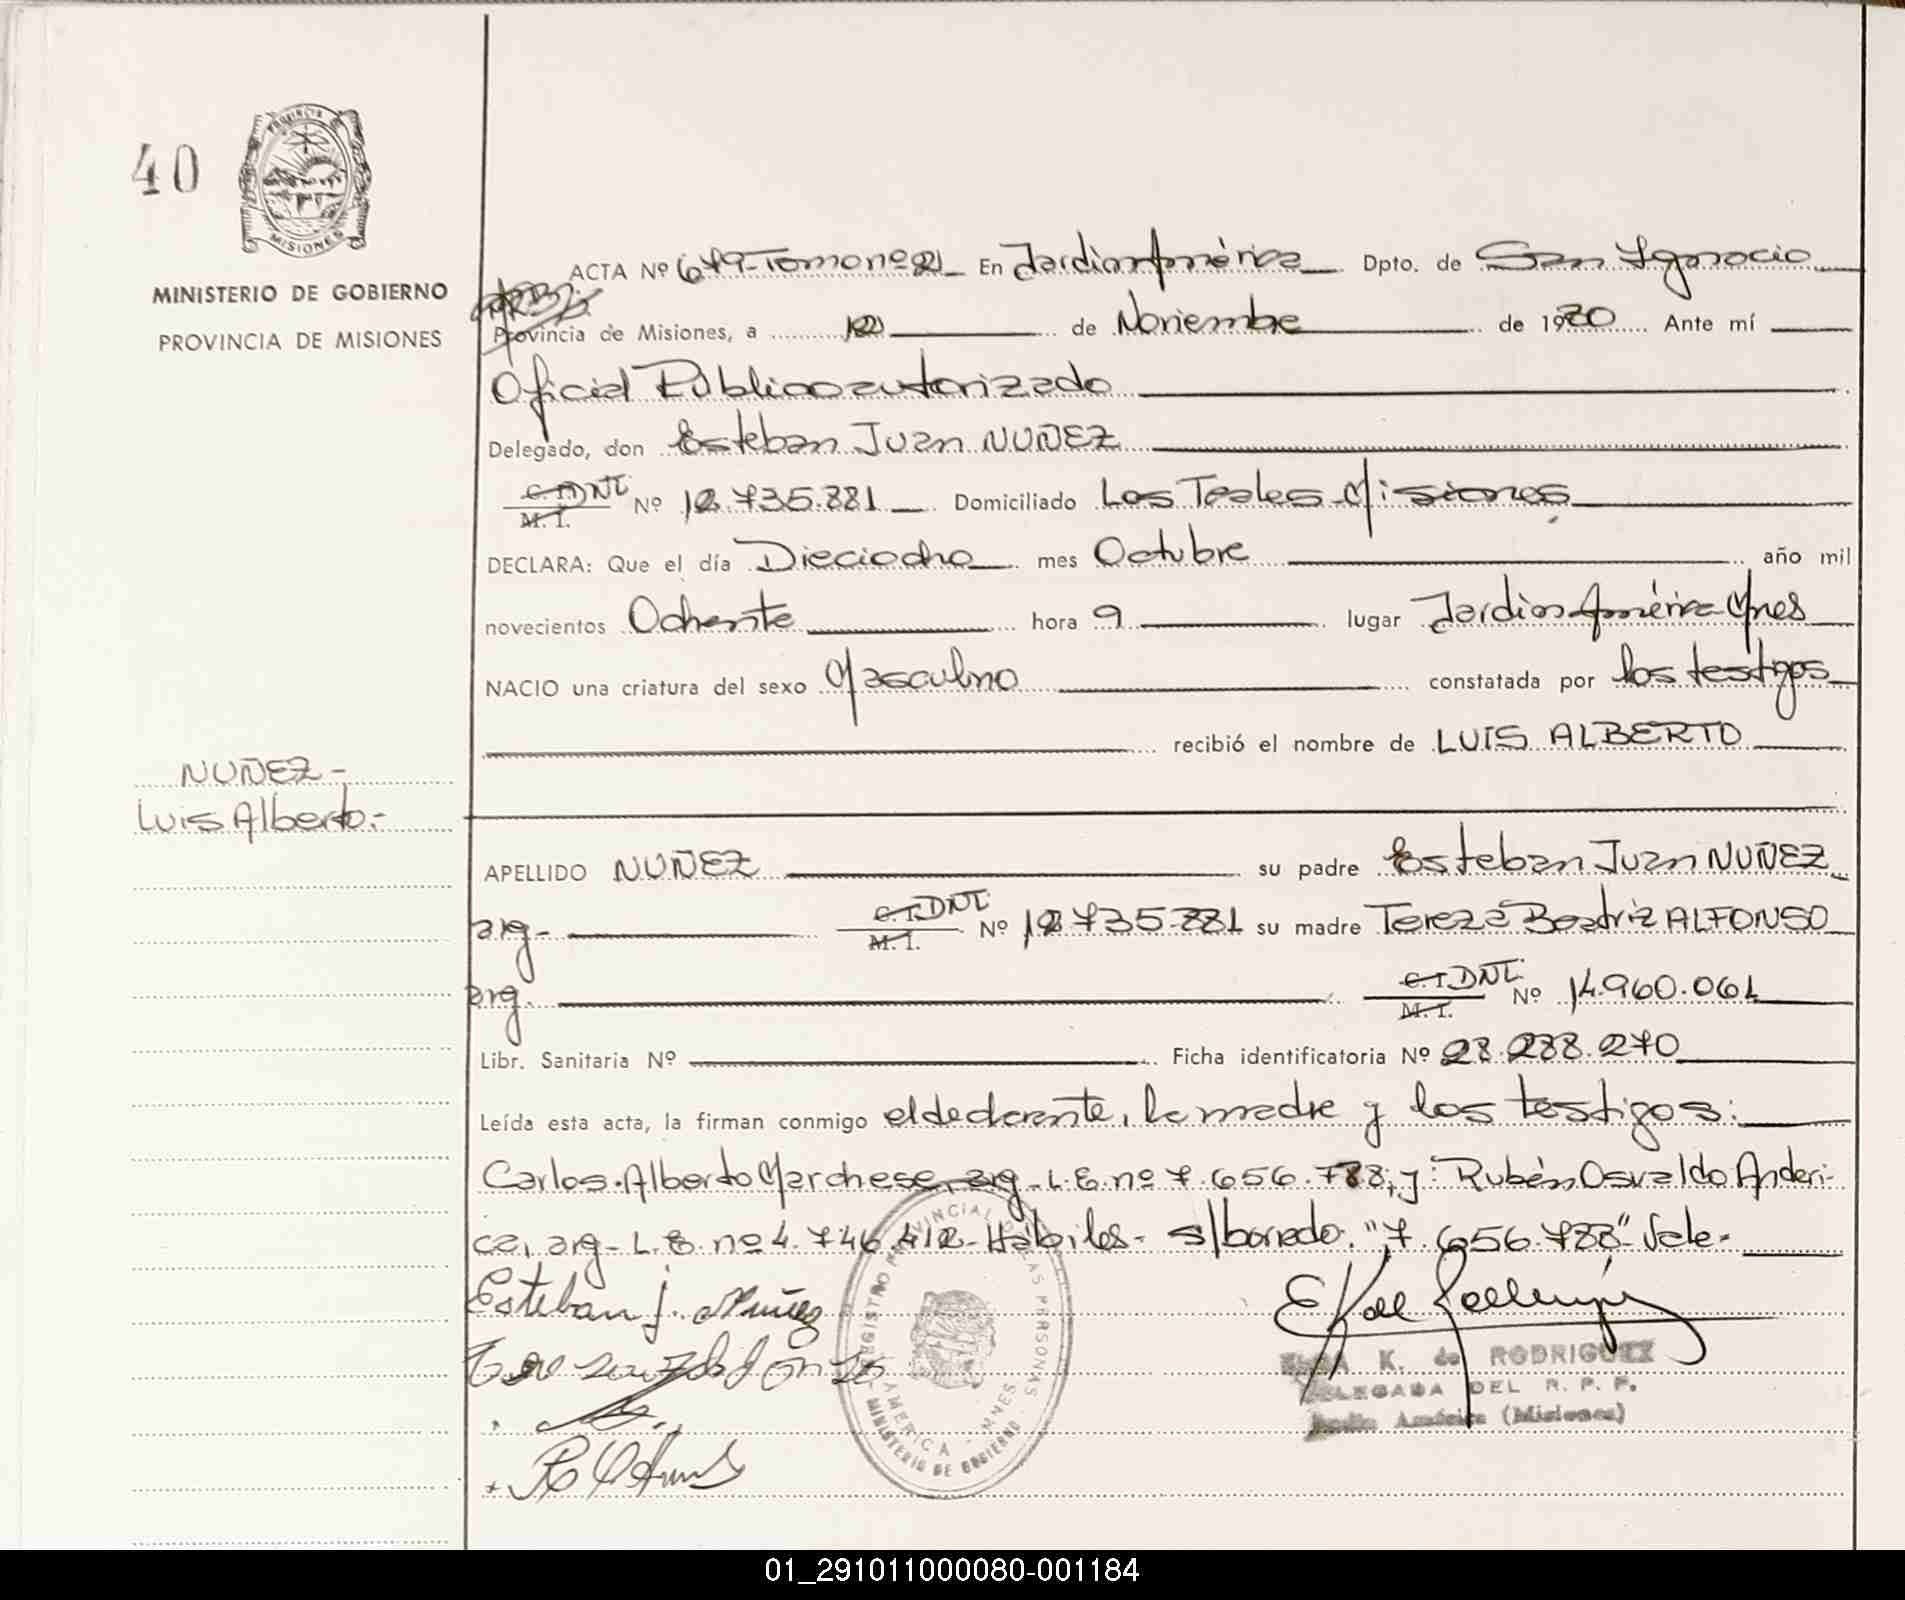 40
PROVINCIA DE
MISIONES
MINISTERIO DE GOBIERNO
PROVINCIA DE MISIONES
ACTA Nº 679-Tomo nº 2 En Jardin América Dpto. de San Ygnacio
Provincia de Misiones, a 12 de Noviembre de 1980 Ante mí
Oficial Público autorizado
Delegado, don Esteban Juan NUÑEZ
C.I. DNI. M.I. Nº 12.735.881 Domiciliado Los Teales-Misiones
DECLARA: Que el día Dieciocho mes Octubre año mil
novecientos Ochenta hora 9 lugar Jardin América Mnes
NACIO una criatura del sexo Masculino constatada por los testigos
recibió el nombre de LUIS ALBERTO
NUÑEZ-
Luis Alberto.-
APELLIDO NUÑEZ su padre Esteban Juan NUÑEZ
arg- C.I. DNI. M.I. Nº 12.735.881 su madre Tereza Beatriz ALFONSO
arg. C.I. DNI. M.I. Nº 14.960.061
Libr. Sanitaria Nº Ficha identificatoria Nº 28.288.270
Leída esta acta, la firman conmigo el declarante, la madre y los testigos:
Carlos Alberto Marchese, arg- L.E. nº 7.656.788; y: Rubén Osvaldo Anderi-
ca, arg- L.E. nº 4.746.412- Hábiles- s/borrado: "7.656.788" Vale-
Esteban J. Nuñez
REGISTRO PROVINCIAL DE LAS PERSONAS
AMERICA - MNES
MINISTERIO DE GOBIERNO
ELSA K. de RODRIGUEZ
DELEGADA DEL R. P. P.
Jardín América (Misiones)
01_291011000080-001184